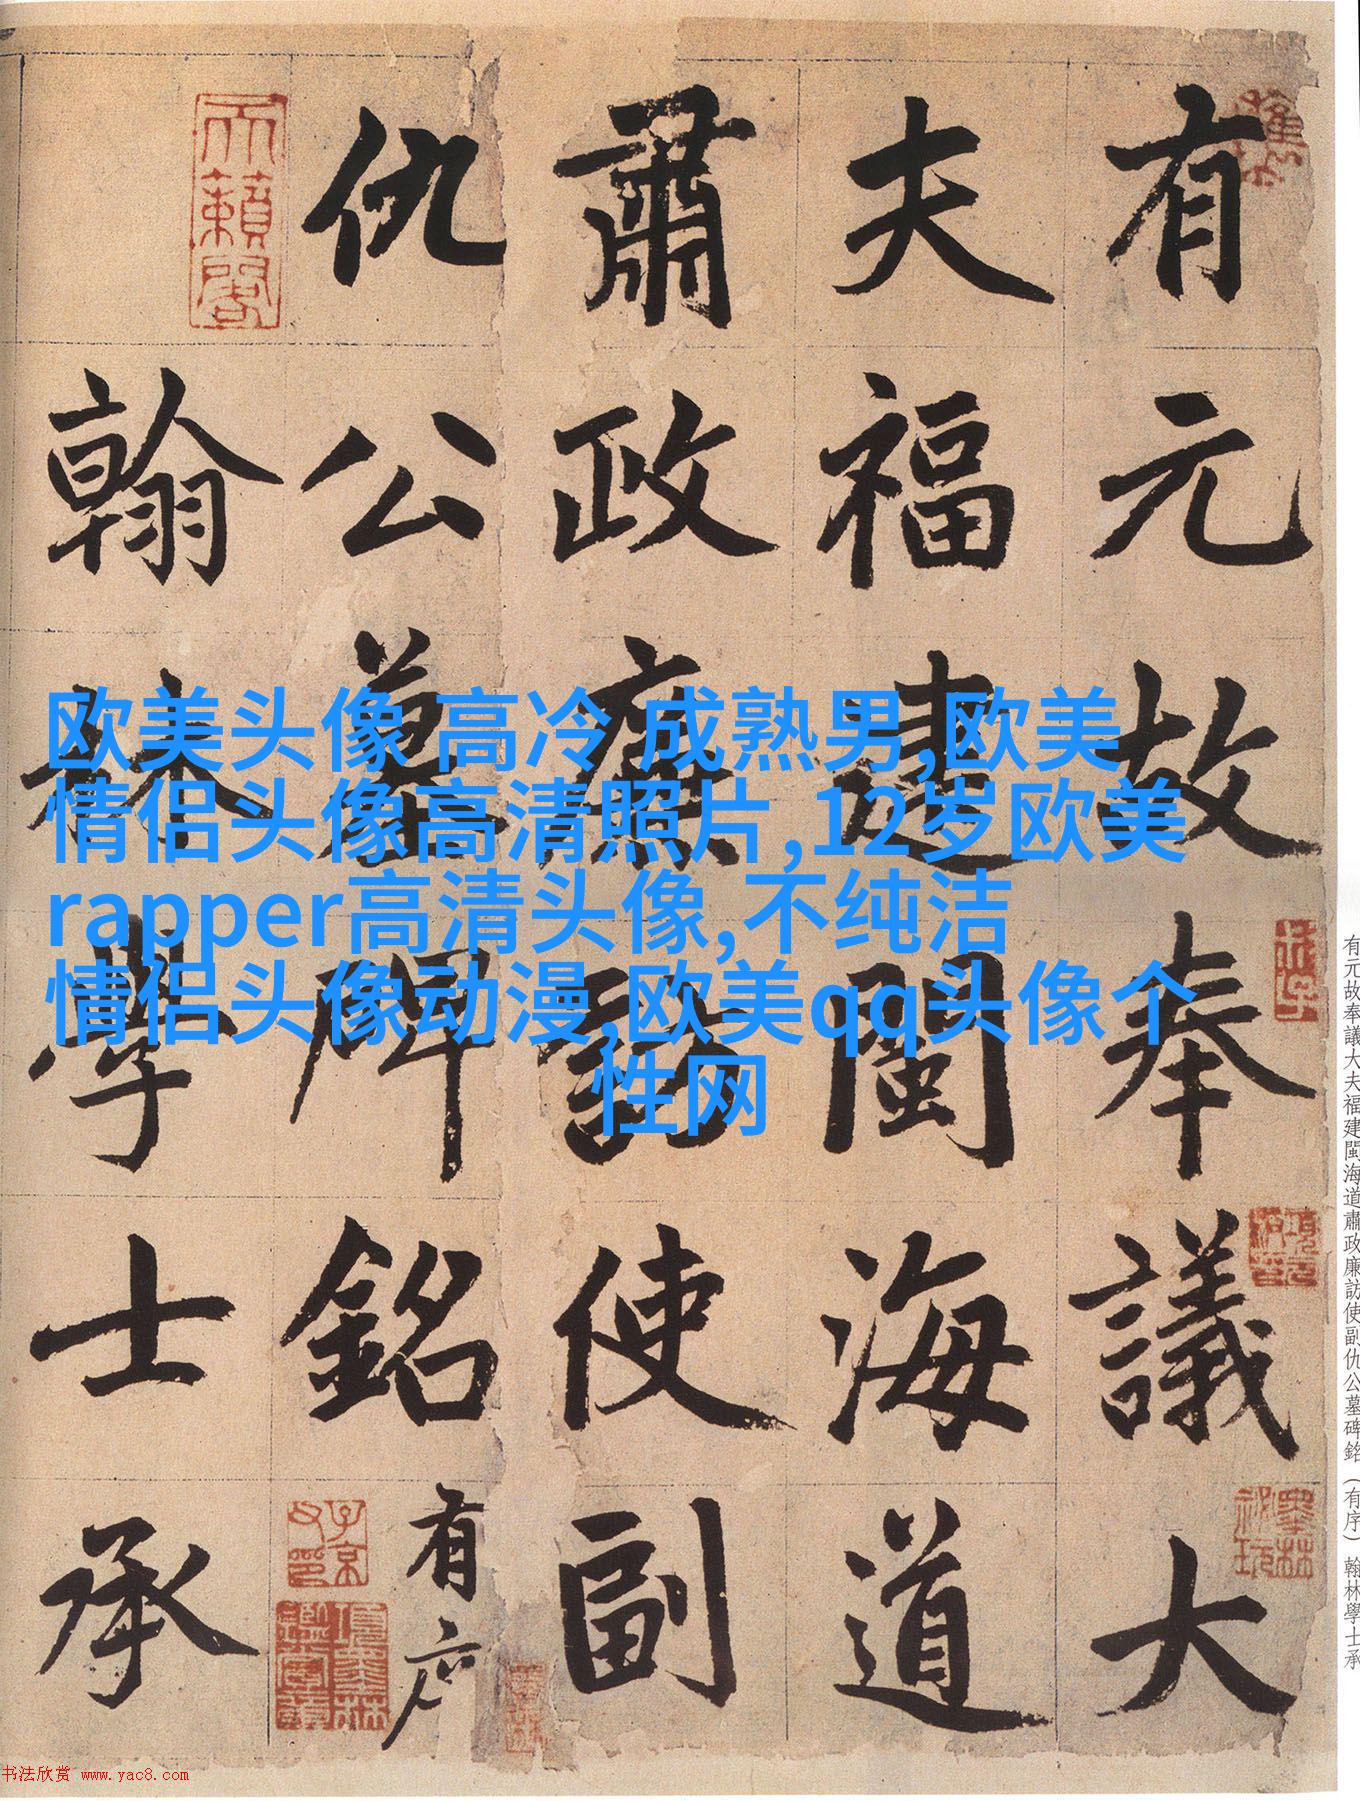 有元故奉議大
夫福建閩海道
肅政廉訪使副
仇公墓碑銘有序
翰林學士承
天籟閣
子京父印
項元汴印
墨林祕玩
欧美头像 高冷 成熟男,欧美
情侣头像高清照片,12岁欧美
rapper高清头像,不纯洁
情侣头像动漫,欧美qq头像个
性网
有元故奉議大夫福建閩海道肅政廉訪使副仇公墓碑銘（有序）翰林學士承
书法欣赏 www.yac8.com